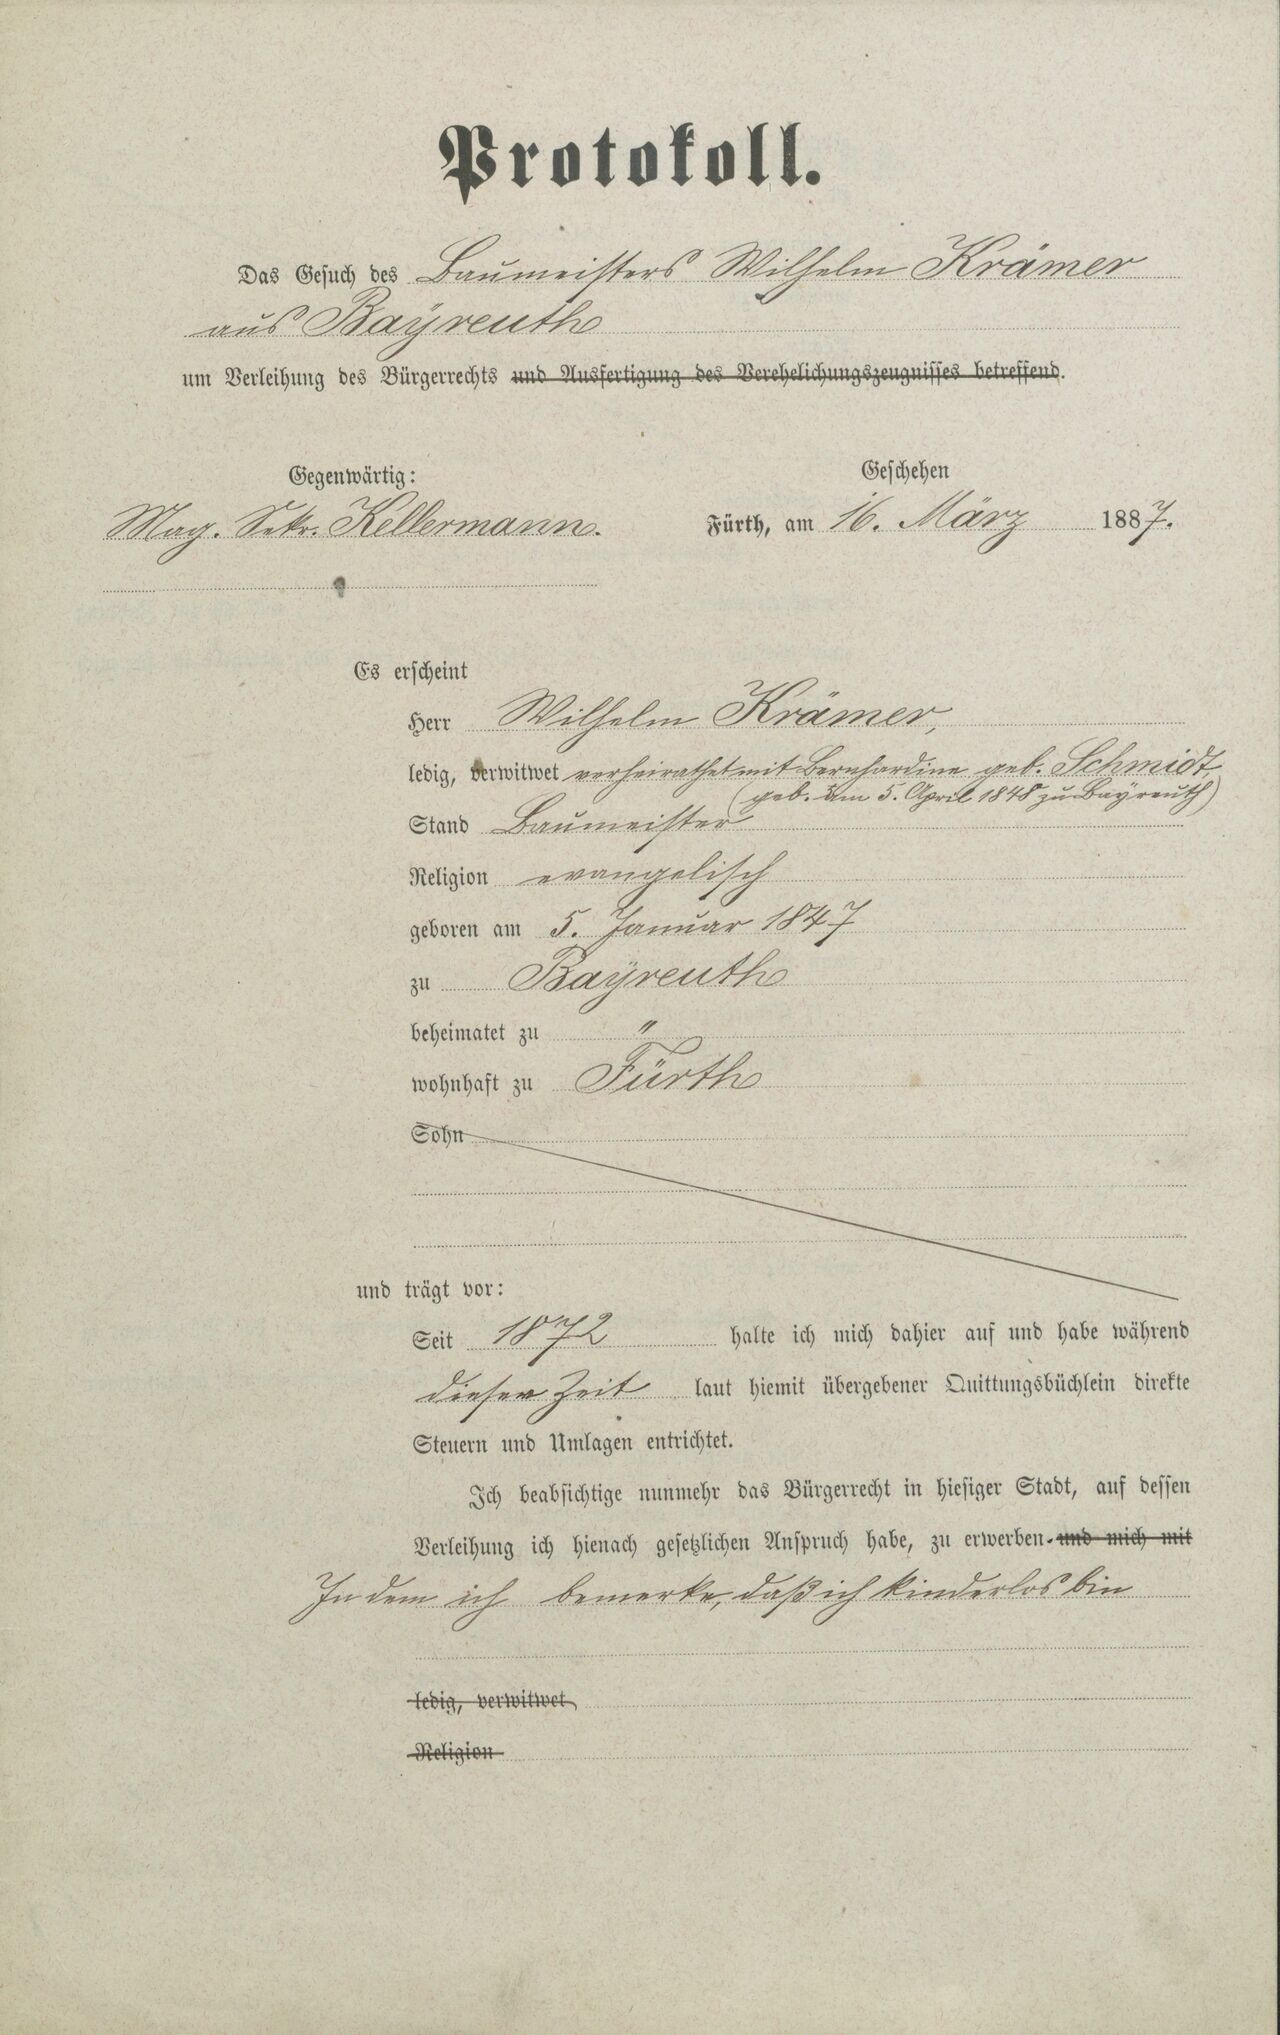 Protokoll.
Das Gesuch des Baumeisters Wilhelm Krämer
aus Bayreuth
um Verleihung des Bürgerrechts und Ausfertigung des Verehelichungszeugnisses betreffend.
Gegenwärtig:
Mag. Sekr. Kellermann.
Geschehen
Fürth, am 16. März 1887.
Es erscheint
Herr Wilhelm Krämer,
ledig, verwitwet verheirathet mit Bernhardine geb. Schmidt,
(geb. am 5. April 1848 zu Bayreuth)
Stand Baumeister
Religion evangelisch
geboren am 5. Januar 1847
zu Bayreuth
beheimatet zu "
wohnhaft zu Fürth
Sohn
und trägt vor:
Seit 1872 halte ich mich dahier auf und habe während
dieser Zeit laut hiemit übergebener Quittungsbüchlein direkte
Steuern und Umlagen entrichtet.
Ich beabsichtige nunmehr das Bürgerrecht in hiesiger Stadt, auf dessen
Verleihung ich hienach gesetzlichen Anspruch habe, zu erwerben. und mich mit
In dem ich bemerke, daß ich kinderlos bin
ledig, verwitwet
Religion